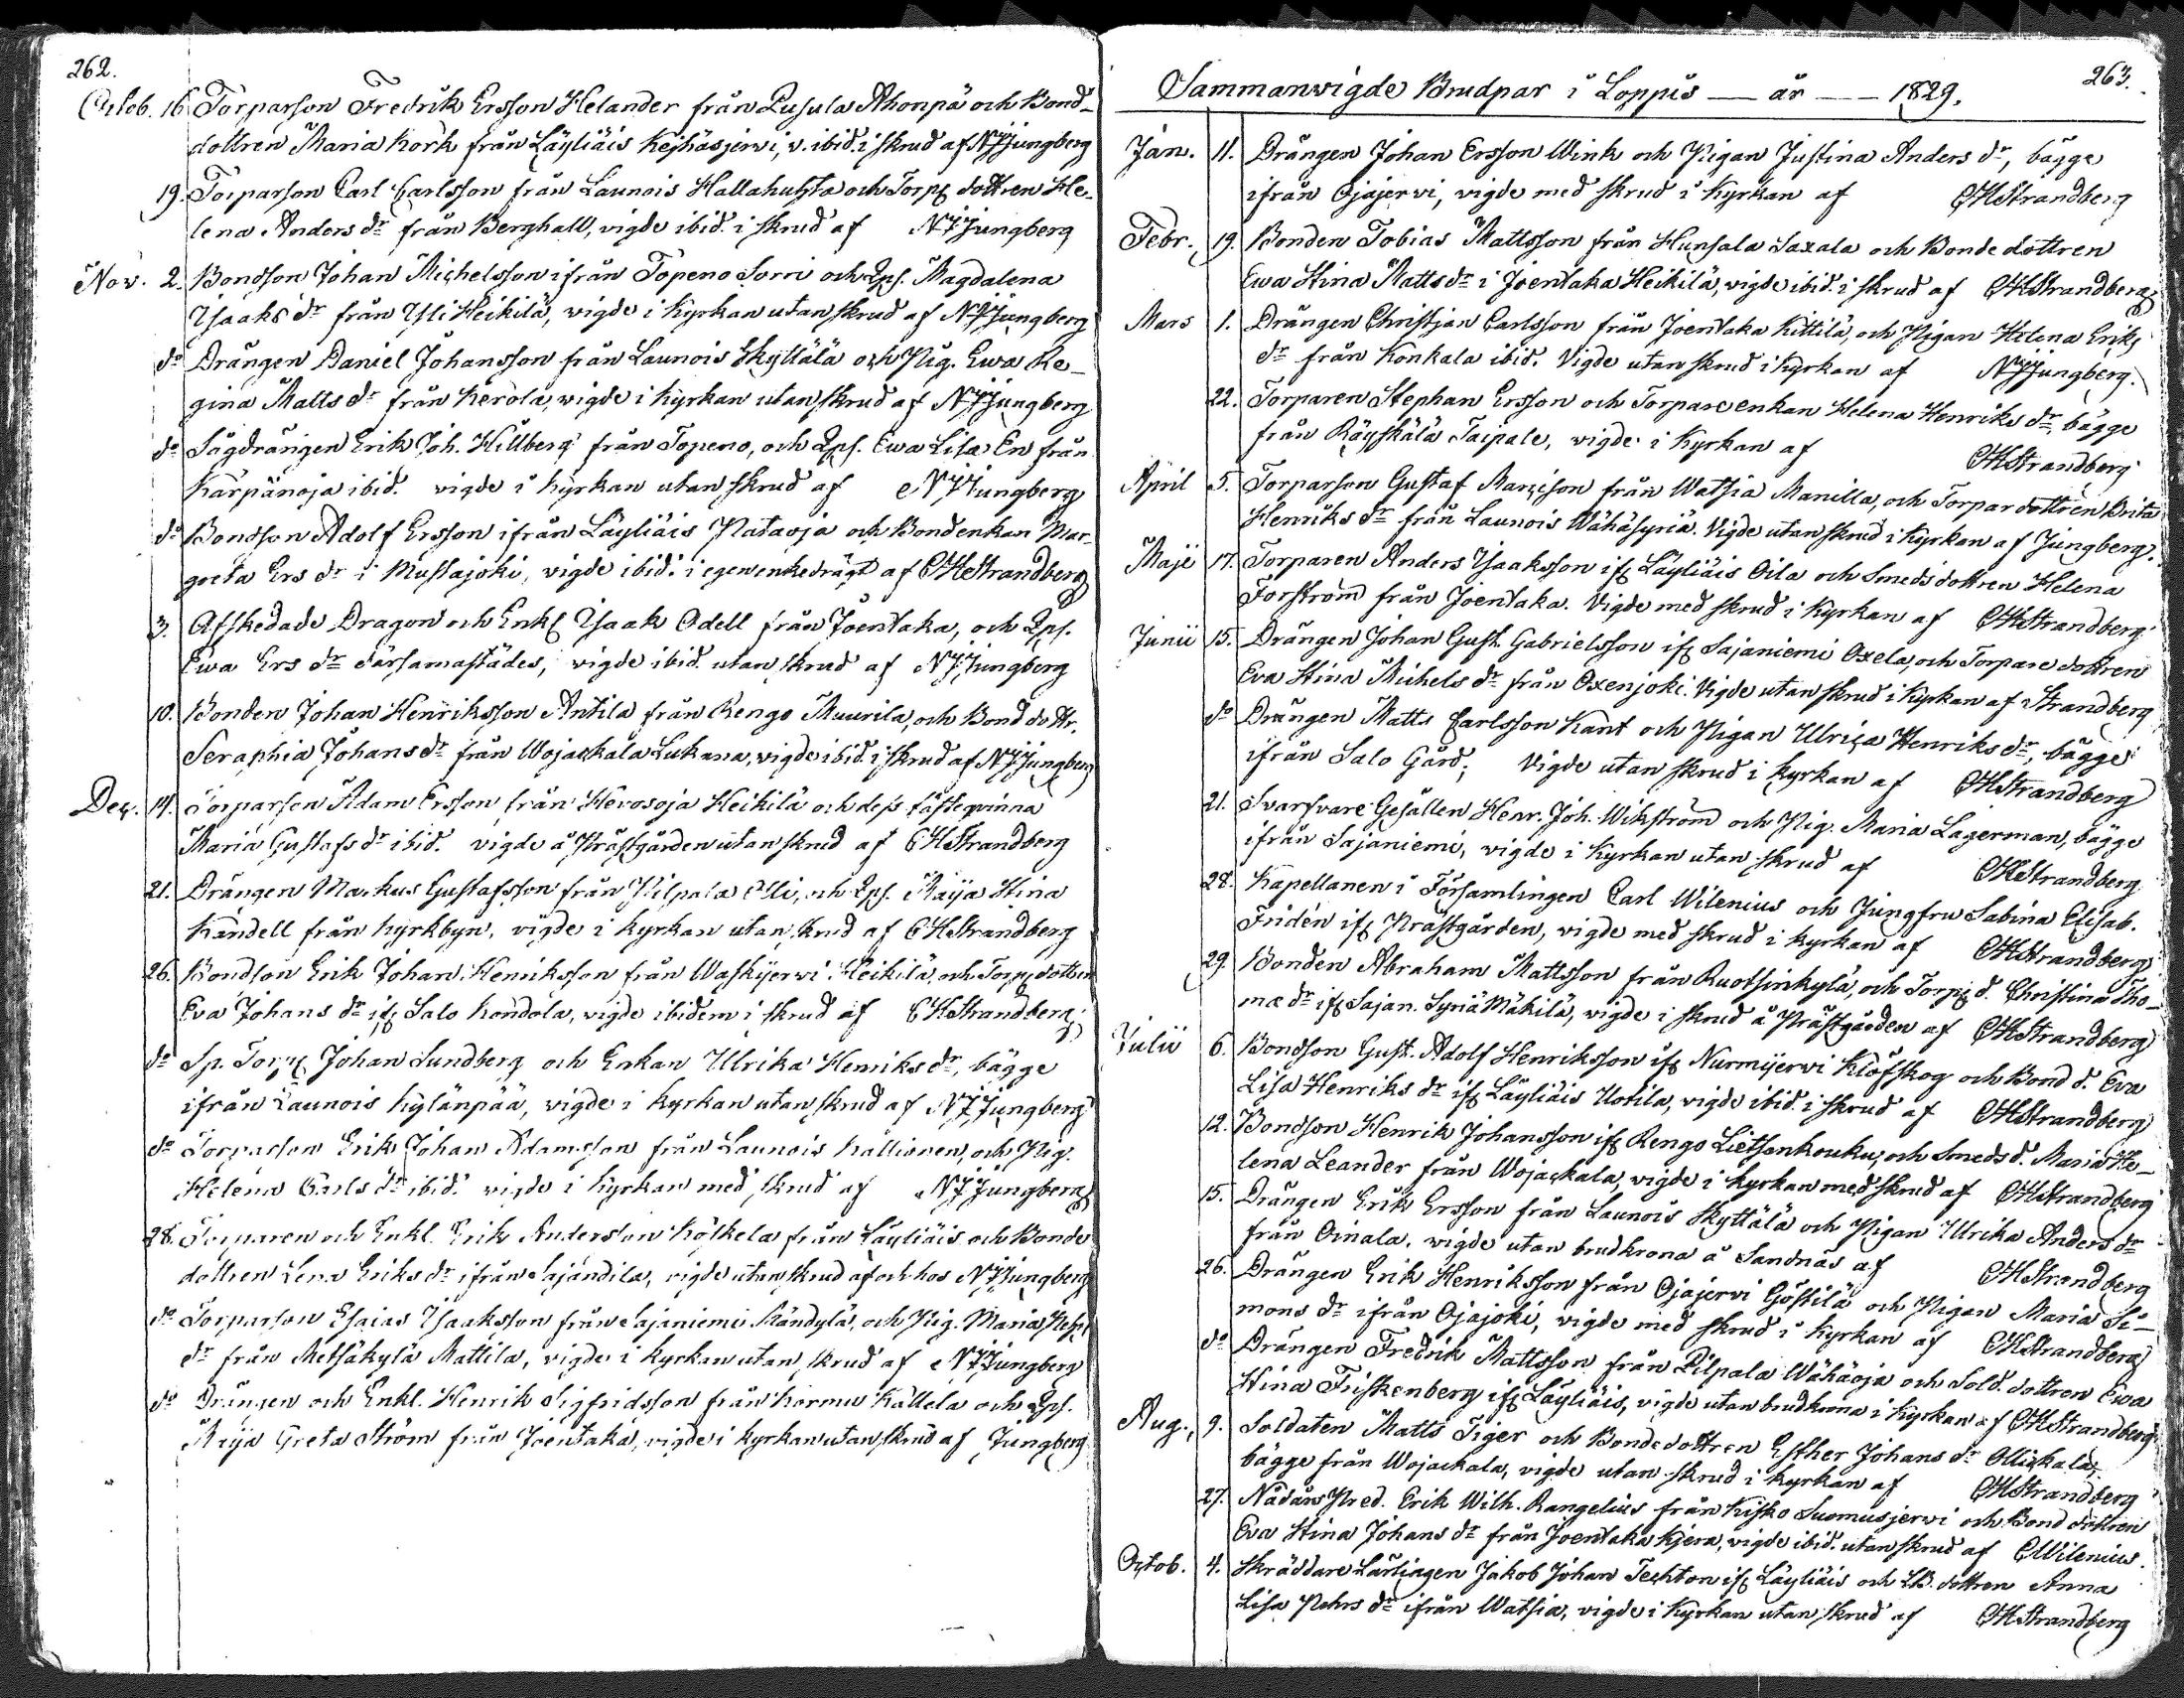 262.
Octob. 16 Torparson Fredrik Ersson Helander från Pusula Ahonpä och Bond-
dottren Maria Kork från Läyliäis Kejhäsjerwi, v. ibid. i skrud af NJjungberg
19. Torparson Carl Carlsson från Launois Hallahuhta och Torp. dottren He-
lena Anders dr från Berghall, vigde ibid. i skrud af NJjungberg
Nov. 2. Bondson Johan Michelsson ifrån Topeno Sorri och Qps. Magdalena
Isaaks dr från Yli Heikilä, vigde i Kyrkan utan skrud af NJjungberg
do Drängen Daniel Johansson från Launois Skyttälä och Pig. Ewa Re-
gina Matts dr från Kerola, vigde i Kyrkan utan skrud af NJjungberg
do Sågdrängen Erik Joh. Hillberg från Topeno, och Qps. Ewa Lisa En från
Karpänoja ibid. vigde i kyrkan utan skrud af NJjungberg
do Bondson Adolf Ersson ifrån Läyliäis Pataoja och Bondenkan Mar-
greta Ers dr i Mustajoki, vigde ibid. i egen enkedrägt af CHStrandberg
3. Afskedade Dragon och Enkl Isaak Odell från Joentaka, och Qps.
Ewa Ers dr därsamastädes, vigde ibid. utan skrud af NJjungberg
10. Bonden Johan Henriksson Antila från Rengo Muurila, och Bond dottr.
Seraphia Johans dr från Wojackala Lukana, vigde ibid. i skrud af NJjungberg
Dec. 14. Torparson Adam Ersson från Hevosoja Heikilä och dess fästeqvinna
Maria Gustafs dr ibid. vigde å Prästgården utan skrud af CHStrandberg
21. Drängen Markus Gustafsson från Pilpala Olli, och Qps. Maija Stina
Kandell från Kyrkbyn, vigde i kyrkan utan skrud af CHStrandberg
26. Bondson Erik Johan Henriksson från Waskijerwi Heikilä, och Torp. dottren
Eva Johans dr ifr Salo Kondola, vigde ibidem i skrud af CHStrandberg
do Sp. Torp. Johan Sundberg och Enkan Ulrika Henriks dr, bägge
ifrån Launois Kylänpää, vigde i kyrkan utan skrud af NJjungberg
do Torparson Erik Johan Adamsson från Launois Kallionen, och Pig.
Helena Carls dr ibid. vigde i kyrkan med skrud af NJjungberg
28. Torparen och Enkl. Erik Andersson Kolkela från Läyliäis och Bonde
dottren Lena Eriks dr ifrån Sajandila, vigde utan skrud af och hos NJjungberg
do Torparson Esaias Isaaksson från Sajaniemi Kändylä, och Pig. Maria
dr från Metsäkylä Mattila, vigde i kyrkan utan skrud af NJjungberg
do Drängen och Enkl. Henrik Sigfridsson från Kormu Kättela och Qps.
Maija Greta Ström från Joentaka, vigde i kyrkan utan skrud af Jungberg
263.
Sammanvigde Brudpar i Loppis — år — 1829.
Jan. 11. Drängen Johan Ersson Wink och Pigan Justina Anders dr, bägge
ifrån Ojajerwi, vigde med skrud i Kyrkan af CHStrandberg
Febr. 19. Bonden Tobias Mattsson från Hunsala Saxala och Bondedottren
Ewa Stina Matts dr i Joentaka Heikilä, vigde ibid. i skrud af CHStrandberg
Mars 1. Drängen Christjan Carlsson från Joentaka Kittilä, och Pigan Helena Eriks
dr från Konkala ibid. Vigde utan skrud i Kyrkan af NJjungberg.
22. Torparen Stephan Ersson och Torpareenkan Helena Henriks dr, bägge
från Räyskälä Taipale, vigde i Kyrkan af CHStrandberg
April 5. Torparson Gustaf Marcison från Watsia Manilla, och Torpardottren Brita
Henriks dr från Launois Wähäsyriä. Vigde utan skrud i Kyrkan af Jungberg.
Maji 17. Torparen Anders Isaaksson ifr Läyliäis Oila och Smedsdottren Helena
Forström från Joentaka. Vigde med skrud i Kyrkan af CHStrandberg
Junii 15. Drängen Johan Gust. Gabrielsson ifr Sajaniemi Oxela, och Torparedottren
Eva Stina Michels dr från Oxenjoki. Vigde utan skrud i Kyrkan af Strandberg
do Drängen Matts Carlsson Kant och Pigan Ulrica Henriks dr, bägge
ifrån Salo Gård; Vigde utan skrud i kyrkan af CHStrandberg
21. Svarfvare Gesällen Henr. Joh. Wikström och Pig. Maria Lagerman, bägge
ifrån Sajaniemi, vigde i Kyrkan utan skrud af CHStrandberg
28. Kapellanen i Församlingen Carl Wilenius och Jungfru Sabina Elisab.
Fridén ifr Prästgården, vigde med skrud i kyrkan af CHStrandberg
29. Bonden Abraham Mattsson från Ruotsinkylä, och Torp. d. Christina Tho-
mæ dr ifr Sajan. Syriä Mäkilä, vigde i skrud å Prästgården af CHStrandberg
Julii 6. Bondson Gust. Adolf Henriksson ifr Nurmijerwi Klöfskog och Bond d. Eva
Lisa Henriks dr ifr Läyliäis Uotila, vigde ibid. i skrud af CHStrandberg
12. Bondson Henrik Johansson ifr Rengo Lietsonkouku, och Smedsd. Maria He-
lena Leander från Wojackala, vigde i kyrkan med skrud af CHStrandberg
15. Drängen Erik Ersson från Launois Skyttälä och Pigan Ulrika Anders dr
från Oinala, vigde utan brudkrona å Sandnäs af CHStrandberg
26. Drängen Erik Henriksson från Ojajerwi Göstilä och Pigan Maria Si-
mons dr ifrån Ojajoki, vigde med skrud i kyrkan af CHStrandberg
do Drängen Fredrik Mattsson från Pilpala Wähäoja och Sold. dottren Ewa
Stina Friskenberg ifr Läyliäis, vigde utan brudkrona i Kyrkan af CHStrandberg
Aug. 9. Soldaten Matts Tiger och Bondedottren Esther Johans dr Ollickala,
bägge från Wojackala, vigde utan skrud i kyrkan af CHStrandberg
27. Nådårs Pred. Erik Wilh. Rangelius från Kisko Suomusjerwi och Bond dottren
Eva Stina Johans dr från Joentaka Kjera, vigde ibid. utan skrud af CWilenius.
Octob. 4. Skräddare Lärlingen Jakob Johan Techton ifr Läyliäis och LB. dottren Anna
Lisa Pehrs dr ifrån Watsia, vigde i Kyrkan utan skrud af CHStrandberg